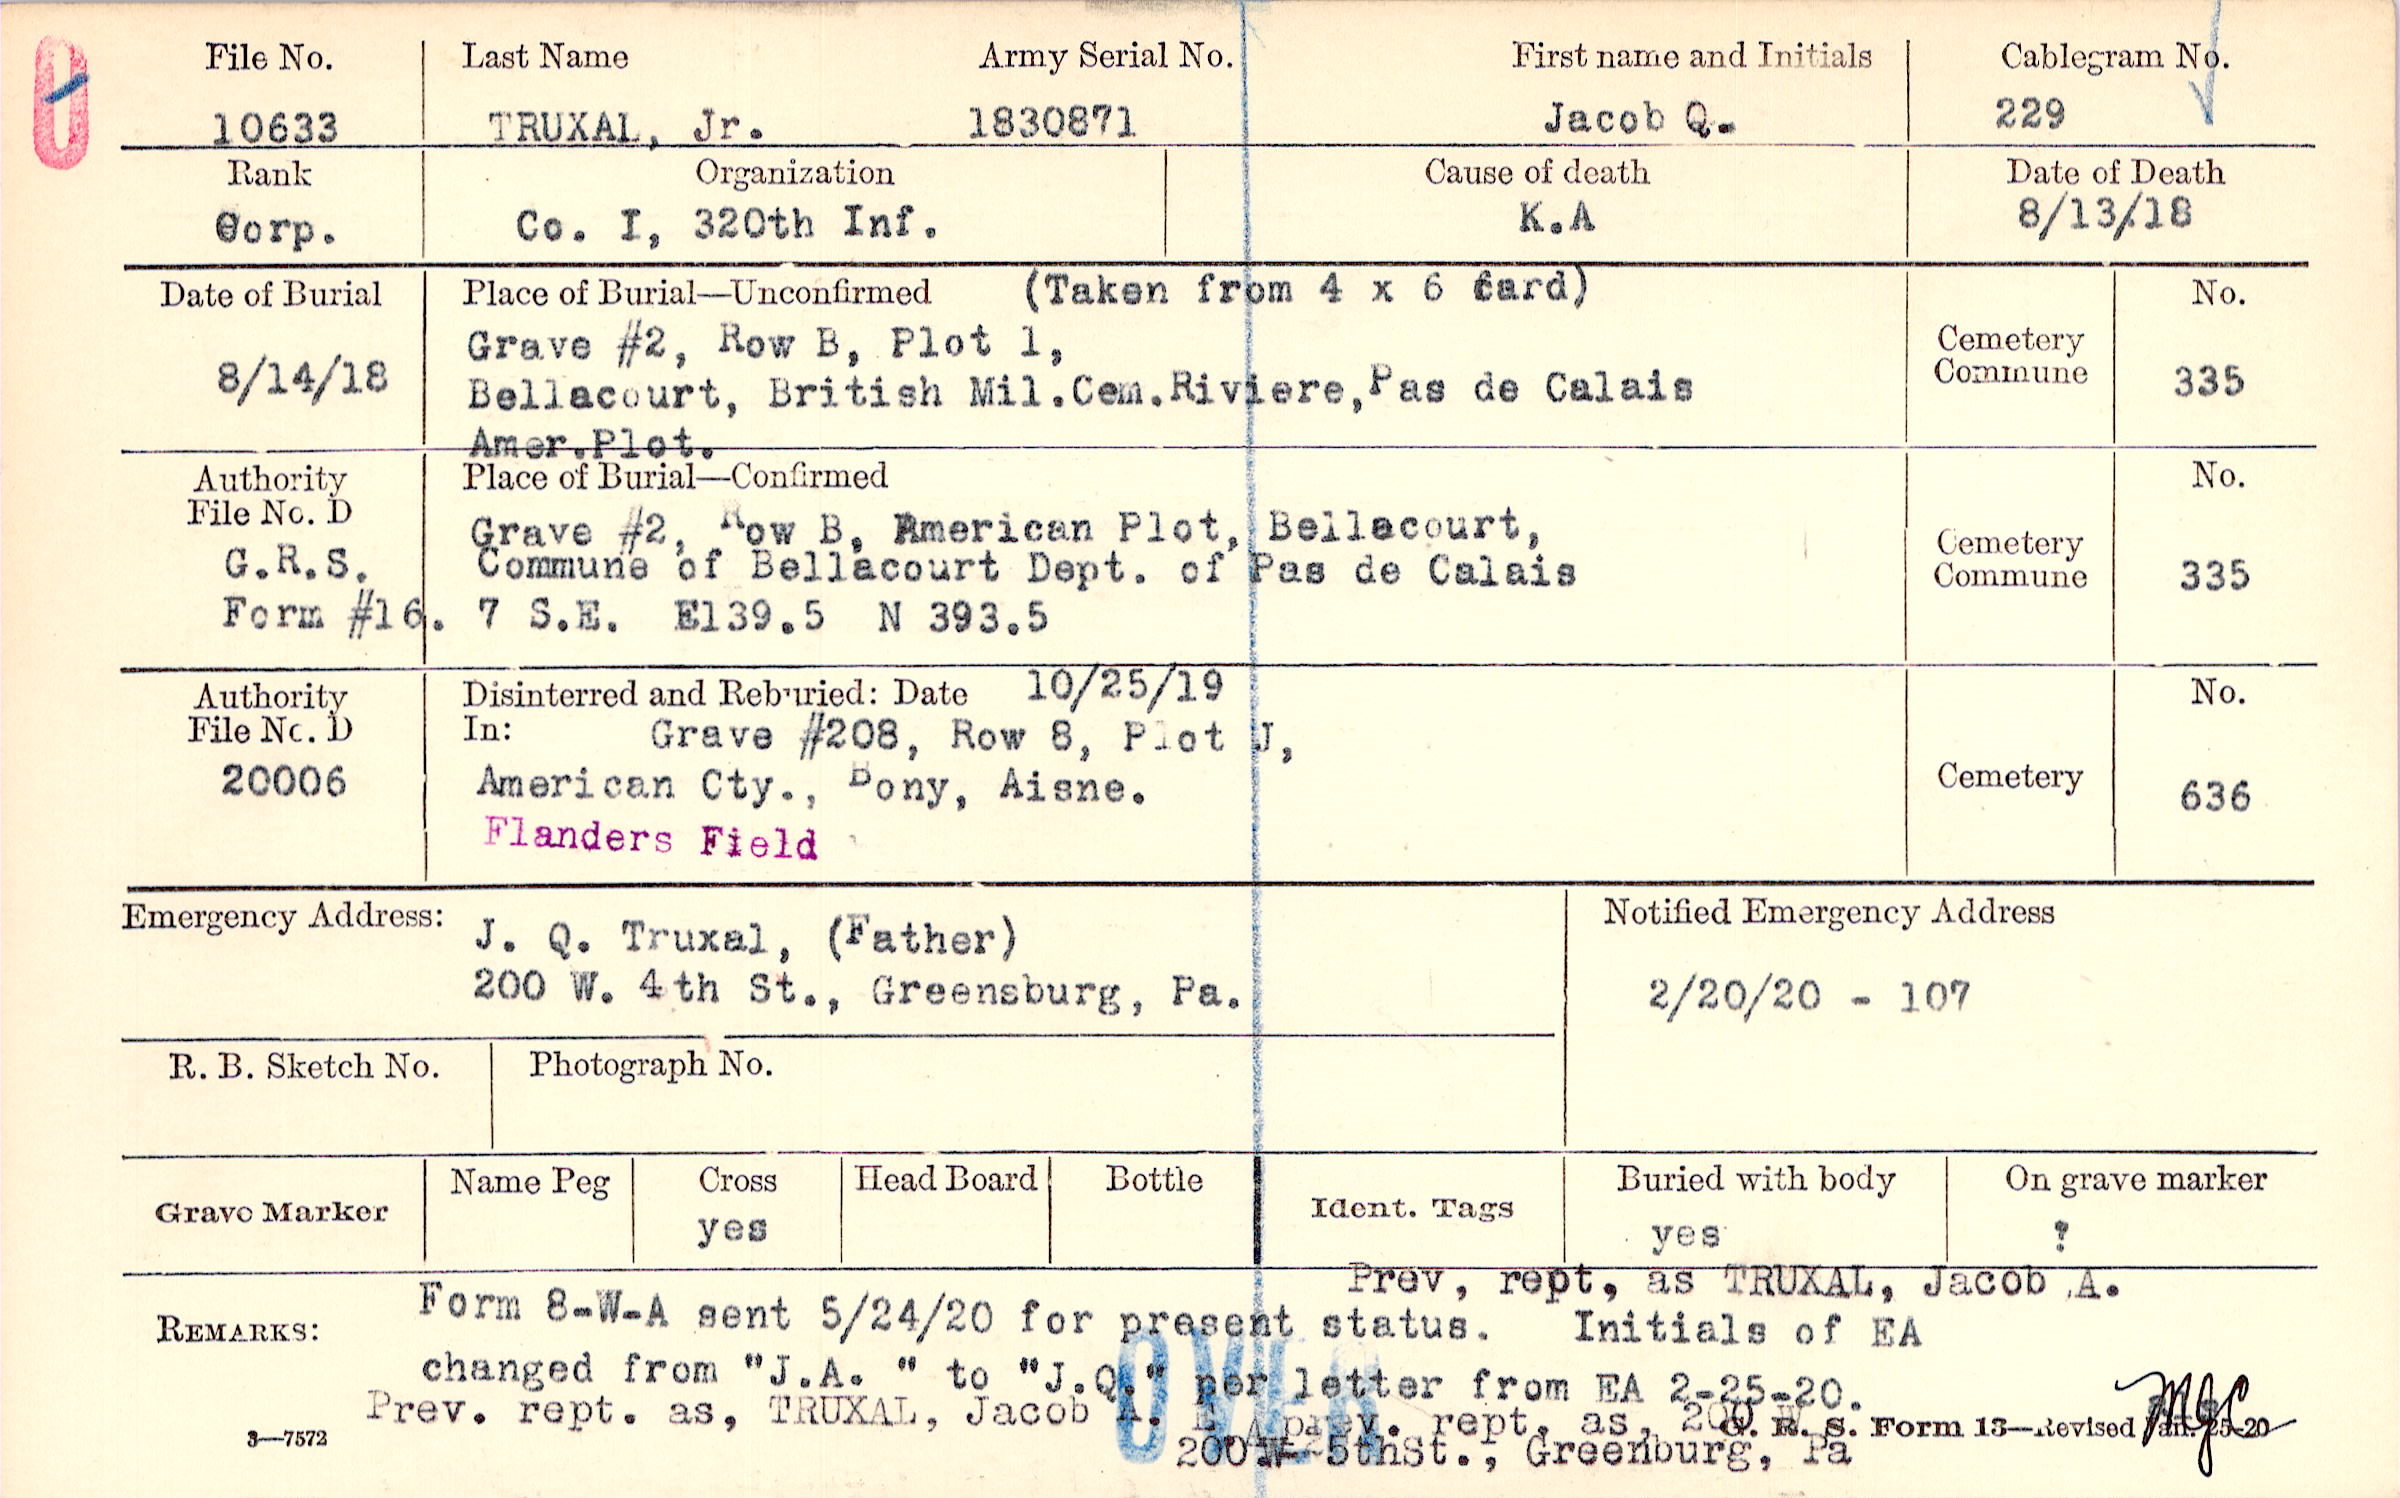 File No. Last Name Army Serial No. First name and Initials Cablegram No.
10633 TRUXAL, Jr. 1830871 Jacob Q. 229
Rank Organization Cause of death Date of Death
Corp. Co. I, 320th Inf. K.A 8/13/18
Date of Burial Place of Burial—Unconfirmed (Taken from 4 x 6 card) No.
8/14/18 Grave #2, Row B, Plot 1, Cemetery
Bellacourt, British Mil.Cem.Riviere,Pas de Calais Commune 335
Amer.Plot.
Authority Place of Burial—Confirmed No.
File No. D Grave #2, Row B, American Plot, Bellacourt, Cemetery
G.R.S. Commune of Bellacourt Dept. of Pas de Calais Commune 335
Form #16. 7 S.E. E139.5 N 393.5
Authority Disinterred and Reburied: Date 10/25/19 No.
File No. D In: Grave #208, Row 8, Plot J,
20006 American Cty., Bony, Aisne. Cemetery 636
Flanders Field
Emergency Address: J. Q. Truxal, (Father) Notified Emergency Address
200 W. 4th St., Greensburg, Pa. 2/20/20 - 107
R. B. Sketch No. Photograph No.
Grave Marker Name Peg Cross Head Board Bottle Ident. Tags Buried with body On grave marker
yes yes ?
Prev, rept, as TRUXAL, Jacob A.
REMARKS: Form 8-W-A sent 5/24/20 for present status. Initials of EA
changed from "J.A. " to "J.Q." per letter from EA 2-25-20.
Prev. rept. as, TRUXAL, Jacob A. E.A prev. rept, as, 200 W
OVER
3—7572 G. R. S. Form 13—Revised Jan. 25-20
200 W 5thSt., Greenburg, Pa